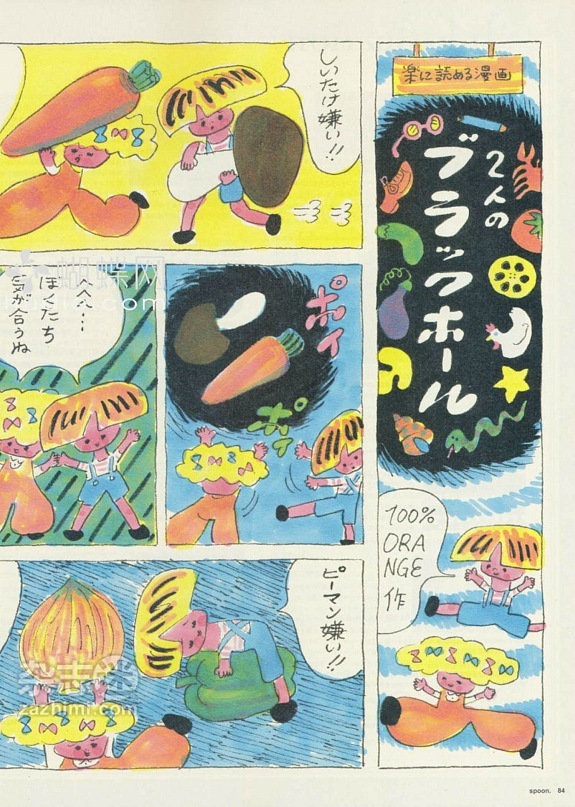 楽に読める漫画
2人の
ブラックホール
100%
ORA
NGE
作
しいたけ嫌い!!
ポイ
ポイ
へへへ…
ぼくたち
気が合うね
ピーマン嫌い!!
蝴蝶网
杂志迷
zazhimi.com
spoon. 84